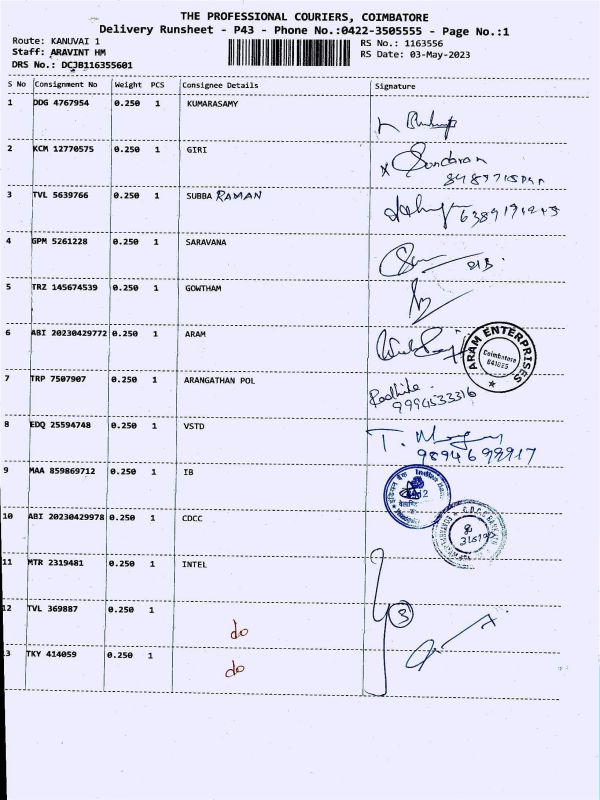 THE PROFESSIONAL COURIERS, COIMBATORE
Delivery Runsheet - P43 - Phone No.:0422-3505555 - Page No.:1
Route: KANUVAI 1
Staff: ARAVINT HM
DRS No.: DCJB116355601
RS No.: 1163556
RS Date: 03-May-2023
S No Consignment No Weight PCS Consignee Details Signature
1 DDG 4767954 0.250 1 KUMARASAMY
2 KCM 12770575 0.250 1 GIRI
Sundaran
3 TVL 5639766 0.250 1 SUBBA RAMAN
4 GPM 5261228 0.250 1 SARAVANA
5 TRZ 145674539 0.250 1 GOWTHAM
6 ABI 20230429772 0.250 1 ARAM
ARAM ENTERPRISES
Coimbatore
641025
7 TRP 7507907 0.250 1 ARANGATHAN POL
Radhika
9994533316
8 EDQ 25594748 0.250 1 VSTD
9894698917
9 MAA 859869712 0.250 1 IB
Indian Bank
10 ABI 20230429978 0.250 1 CDCC
11 MTR 2319481 0.250 1 INTEL
12 TVL 369887 0.250 1 do
3
3 TKY 414059 0.250 1 do